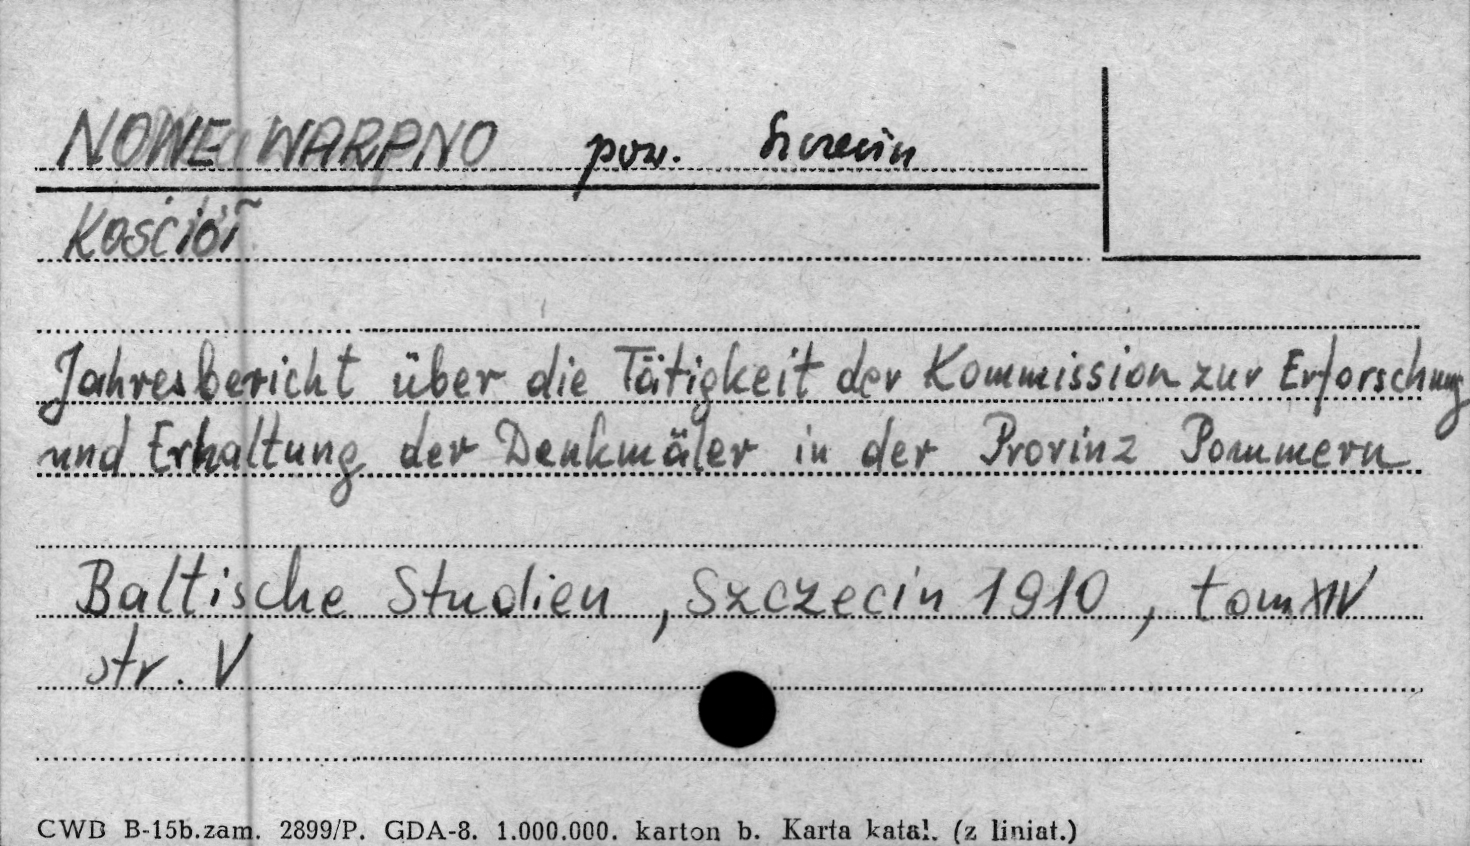 NOWE WARPNO pow. Szczecin
Kościół
Jahresbericht über die Tätigkeit der Kommission zur Erforschung
und Erhaltung der Denkmäler in der Provinz Pommern
Baltische Studien, Szczecin 1910, tom XIV
str. V
CWD B-15b.zam. 2899/P. GDA-8. 1.000.000. karton b. Karta katal. (z liniat.)